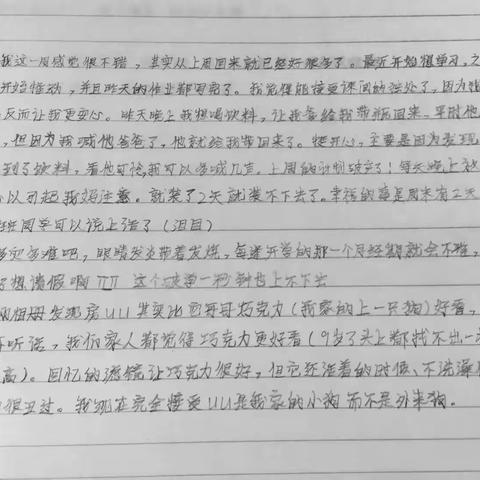 我这一周感觉很不错,其实从上周回来就已经好很多了。最近开始想学习,之
开始悸动,并且昨天的作业都写完了。我觉得能接受课间的独处了,因为独
反而让我更安心。昨天晚上我想喝饮料,让我爸给我带瓶回来。平时他
,但因为我喊他爸爸了,他就给我带回来了。挺开心,主要是因为发现
到了饮料,看他可怜我可以多喊几声。上周的计划破产了!每天晚上放
以引起我妈注意。就装了2天就装不下去了。幸福的事是周末有2天
班同学可以说上话了(泪目)
多灾多难吧,眼睛发炎带着发烧,每逢开学的那一个月经期就会不准,
想请假啊 ΠΠ 这个破学一秒钟也上不下去
翻相册发现房UU其实比哥哥巧克力(我家的上一只狗)好看,
听话,我们家人都觉得巧克力更好看(9岁了头上都找不出一
高)。回忆的滤镜让巧克力很好,但它还活着的时候、不洗澡
很丑过。我现在完全接受UU是我家的小狗而不是外来狗。